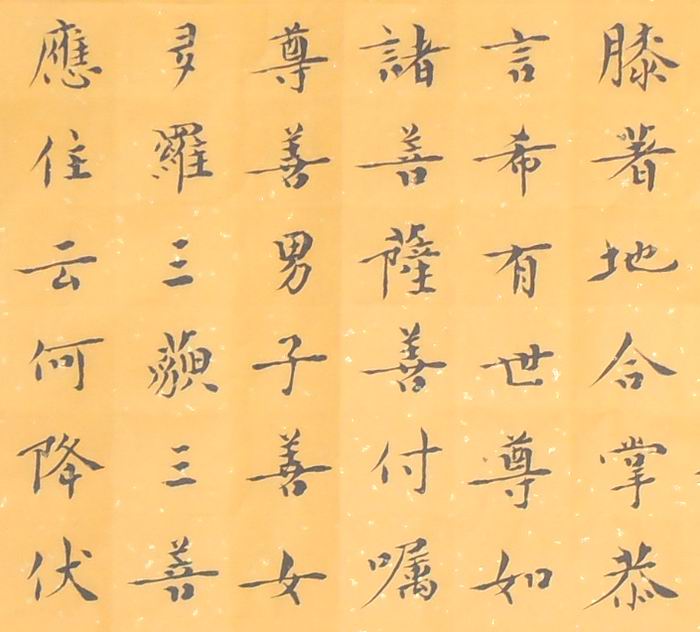 膝著地合掌恭
言希有世尊如
諸菩薩善付嘱
尊善男子善女
多羅三藐三菩
應住云何降伏